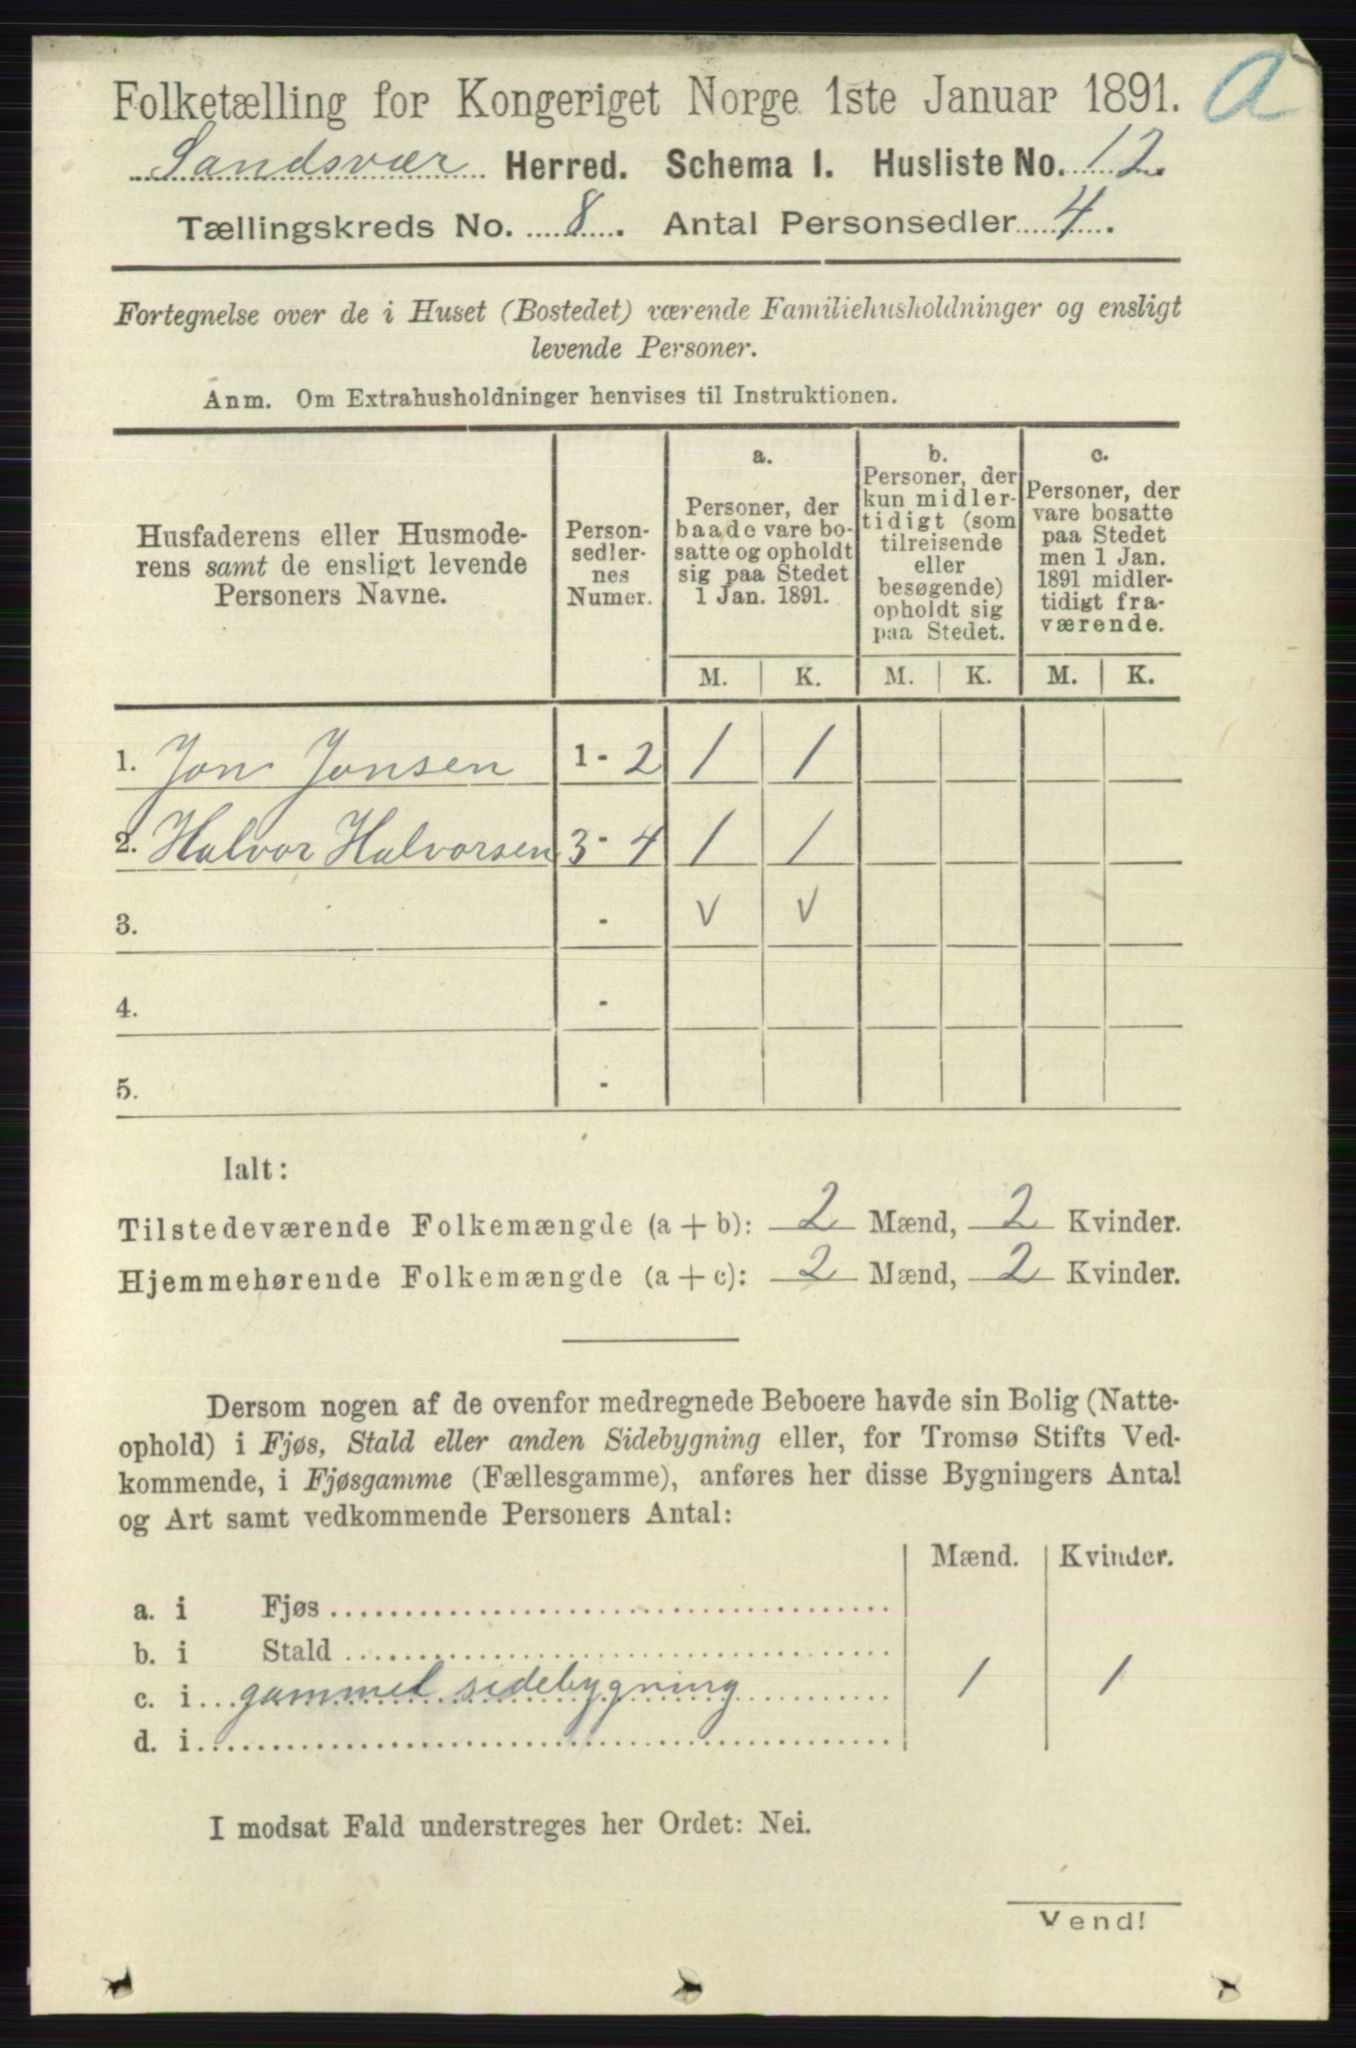 Folketælling for Kongeriget Norge 1ste Januar 1891.
a
Sandsvær Herred. Schema 1. Husliste No. 12.
Tællingskreds No. 8. Antal Personsedler 4.
Fortegnelse over de i Huset (Bostedet) værende Familiehusholdninger og ensligt
levende Personer.
Anm. Om Extrahusholdninger henvises til Instruktionen.
Husfaderens eller Husmode-
rens samt de ensligt levende
Personers Navne.
Person-
sedler-
nes
Numer.
a.
Personer, der
baade vare bo-
satte og opholdt
sig paa Stedet
1 Jan. 1891.
b.
Personer, der
kun midler-
tidigt (som
tilreisende
eller
besøgende)
opholdt sig
paa Stedet.
c.
Personer, der
vare bosatte
paa Stedet
men 1 Jan.
1891 midler-
tidigt fra-
værende.
M. K. M. K. M. K.
1. Jon Jonsen 1 - 2 1 1
2. Halvor Halvorsen 3 - 4 1 1
3. - V V
4. -
5. -
Ialt:
Tilstedeværende Folkemængde (a + b): 2 Mænd, 2 Kvinder.
Hjemmehørende Folkemængde (a + c): 2 Mænd, 2 Kvinder.
Dersom nogen af de ovenfor medregnede Beboere havde sin Bolig (Natte-
ophold) i Fjøs, Stald eller anden Sidebygning eller, for Tromsø Stifts Ved-
kommende, i Fjøsgamme (Fællesgamme), anføres her disse Bygningers Antal
og Art samt vedkommende Personers Antal:
Mænd. Kvinder.
a. i Fjøs
b. i Stald
c. i gammel sidebygning 1 1
d. i
I modsat Fald understreges her Ordet: Nei.
Vend!